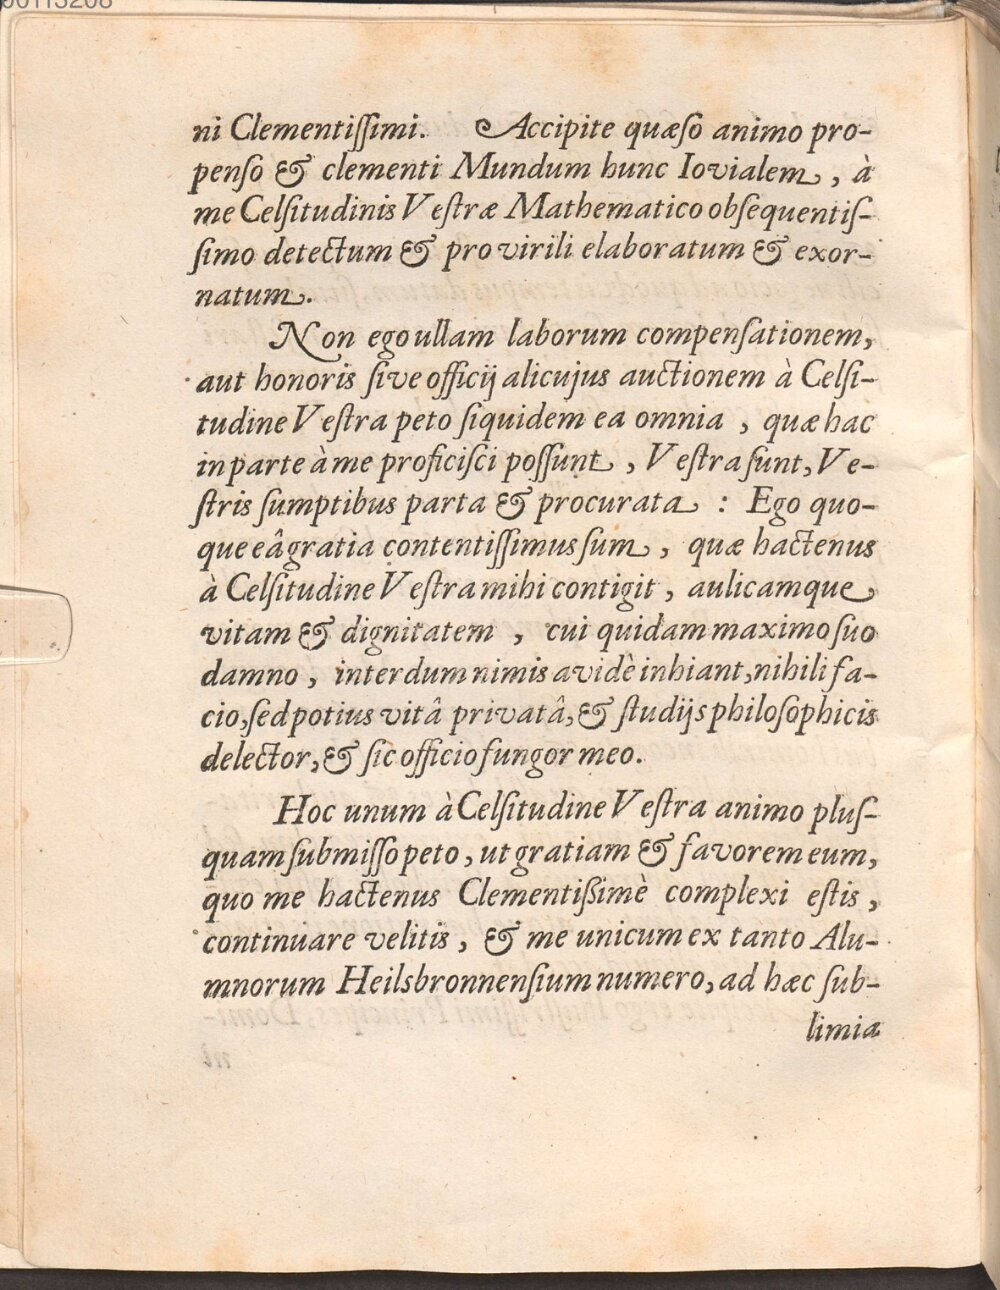 00113208
ni Clementiſſimi. Accipite quæſo animo pro-
penſo & clementi Mundum hunc Iovialem, à
me Celſitudinis Veſtræ Mathematico obſequentiſ-
ſimo detectum & pro virili elaboratum & exor-
natum.
Non ego ullam laborum compenſationem,
aut honoris ſive officij alicujus auctionem à Celſi-
tudine Veſtra peto ſiquidem ea omnia, quæ hac
in parte à me proficiſci poſſunt, Veſtra ſunt, Ve-
ſtris ſumptibus parta & procurata: Ego quo-
que eâ gratia contentiſſimus ſum, quæ hactenus
à Celſitudine Veſtra mihi contigit, aulicamque
vitam & dignitatem, cui quidam maximo ſuo
damno, interdum nimis avidè inhiant, nihili fa-
cio, ſed potius vitâ privatâ, & ſtudijs philoſophicis
delector, & ſic officio fungor meo.
Hoc unum à Celſitudine Veſtra animo pluſ-
quam ſubmiſſo peto, ut gratiam & favorem eum,
quo me hactenus Clementißimè complexi eſtis,
continuare velitis, & me unicum ex tanto Alu-
mnorum Heilsbronnenſium numero, ad hæc ſub-
limia